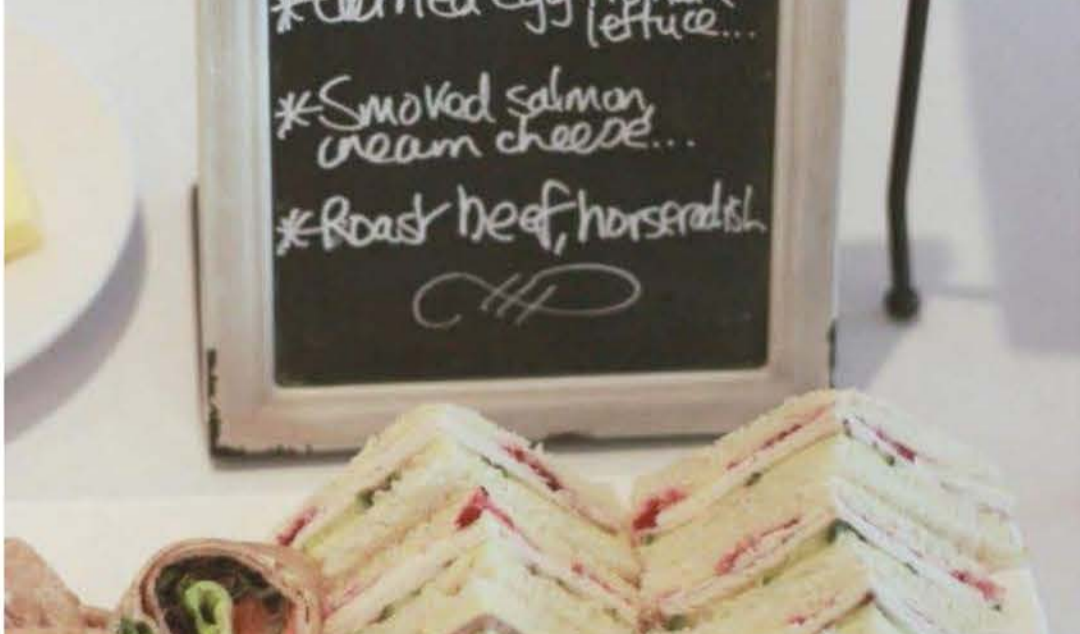 egg
lettuce...
*Smoked salmon,
cream cheese...
*Roast beef, horseradish